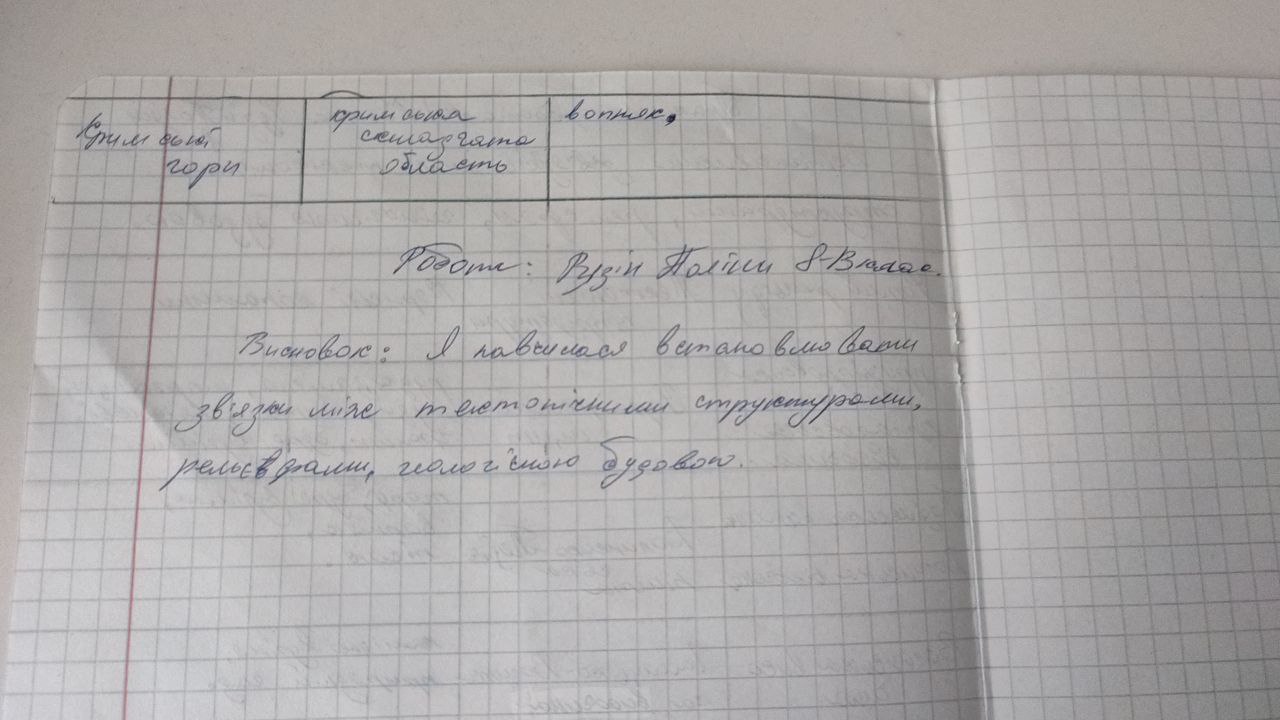 Кримські гори
кримська складчата область
вапняк.
Робота: Рузін Поліни 8-В клас.
Висновок: Я навчилася встановлювати
зв'язки між тектонічними структурами,
рельєфами, геологічною будовою.